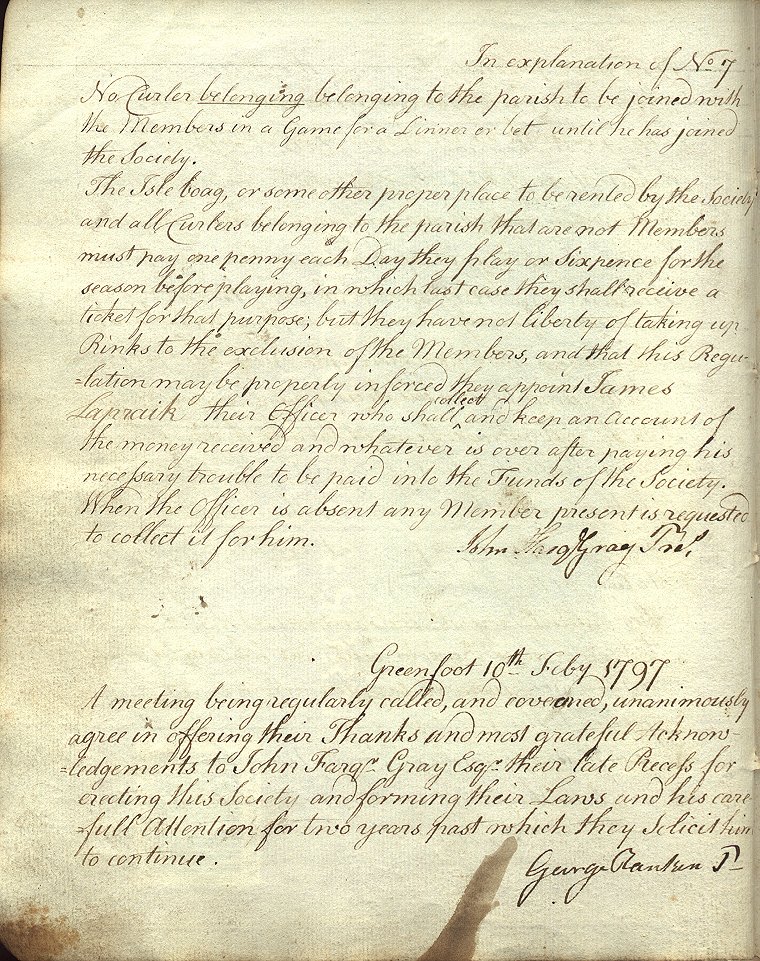 In explanation of No 7
No Curler belonging belonging to the parish to be joined with
the Members in a Game for a Dinner or bet until he has joined
the Society.
The Isle boag, or some other proper place to be rented by the Society
and all Curlers belonging to the parish that are not Members
must pay one penny each Day they play or Sixpence for the
season before playing, in which last case they shall receive a
ticket for that purpose; but they have not liberty of taking up
Rinks to the exclusion of the Members, and that this Regu-
=lation may be properly inforced they appoint James
Lapraik their Officer who shall collect ^ and keep an account of
the money received and whatever is over after paying his
necessary trouble to be paid into the Funds of the Society.
When the Officer is absent any Member present is requested
to collect it for him.
John Farqr Gray Pres.
Greenfoot 10th Feby 1797
A meeting being regularly called, and coveened, unanimously
agree in offering their Thanks and most grateful Acknow-
=ledgements to John Farqr. Gray Esqr. their late Precess for
erecting this Society and forming their Laws and his care
=full Attention for two years past which they Solicit him
to continue.
George Ranken P